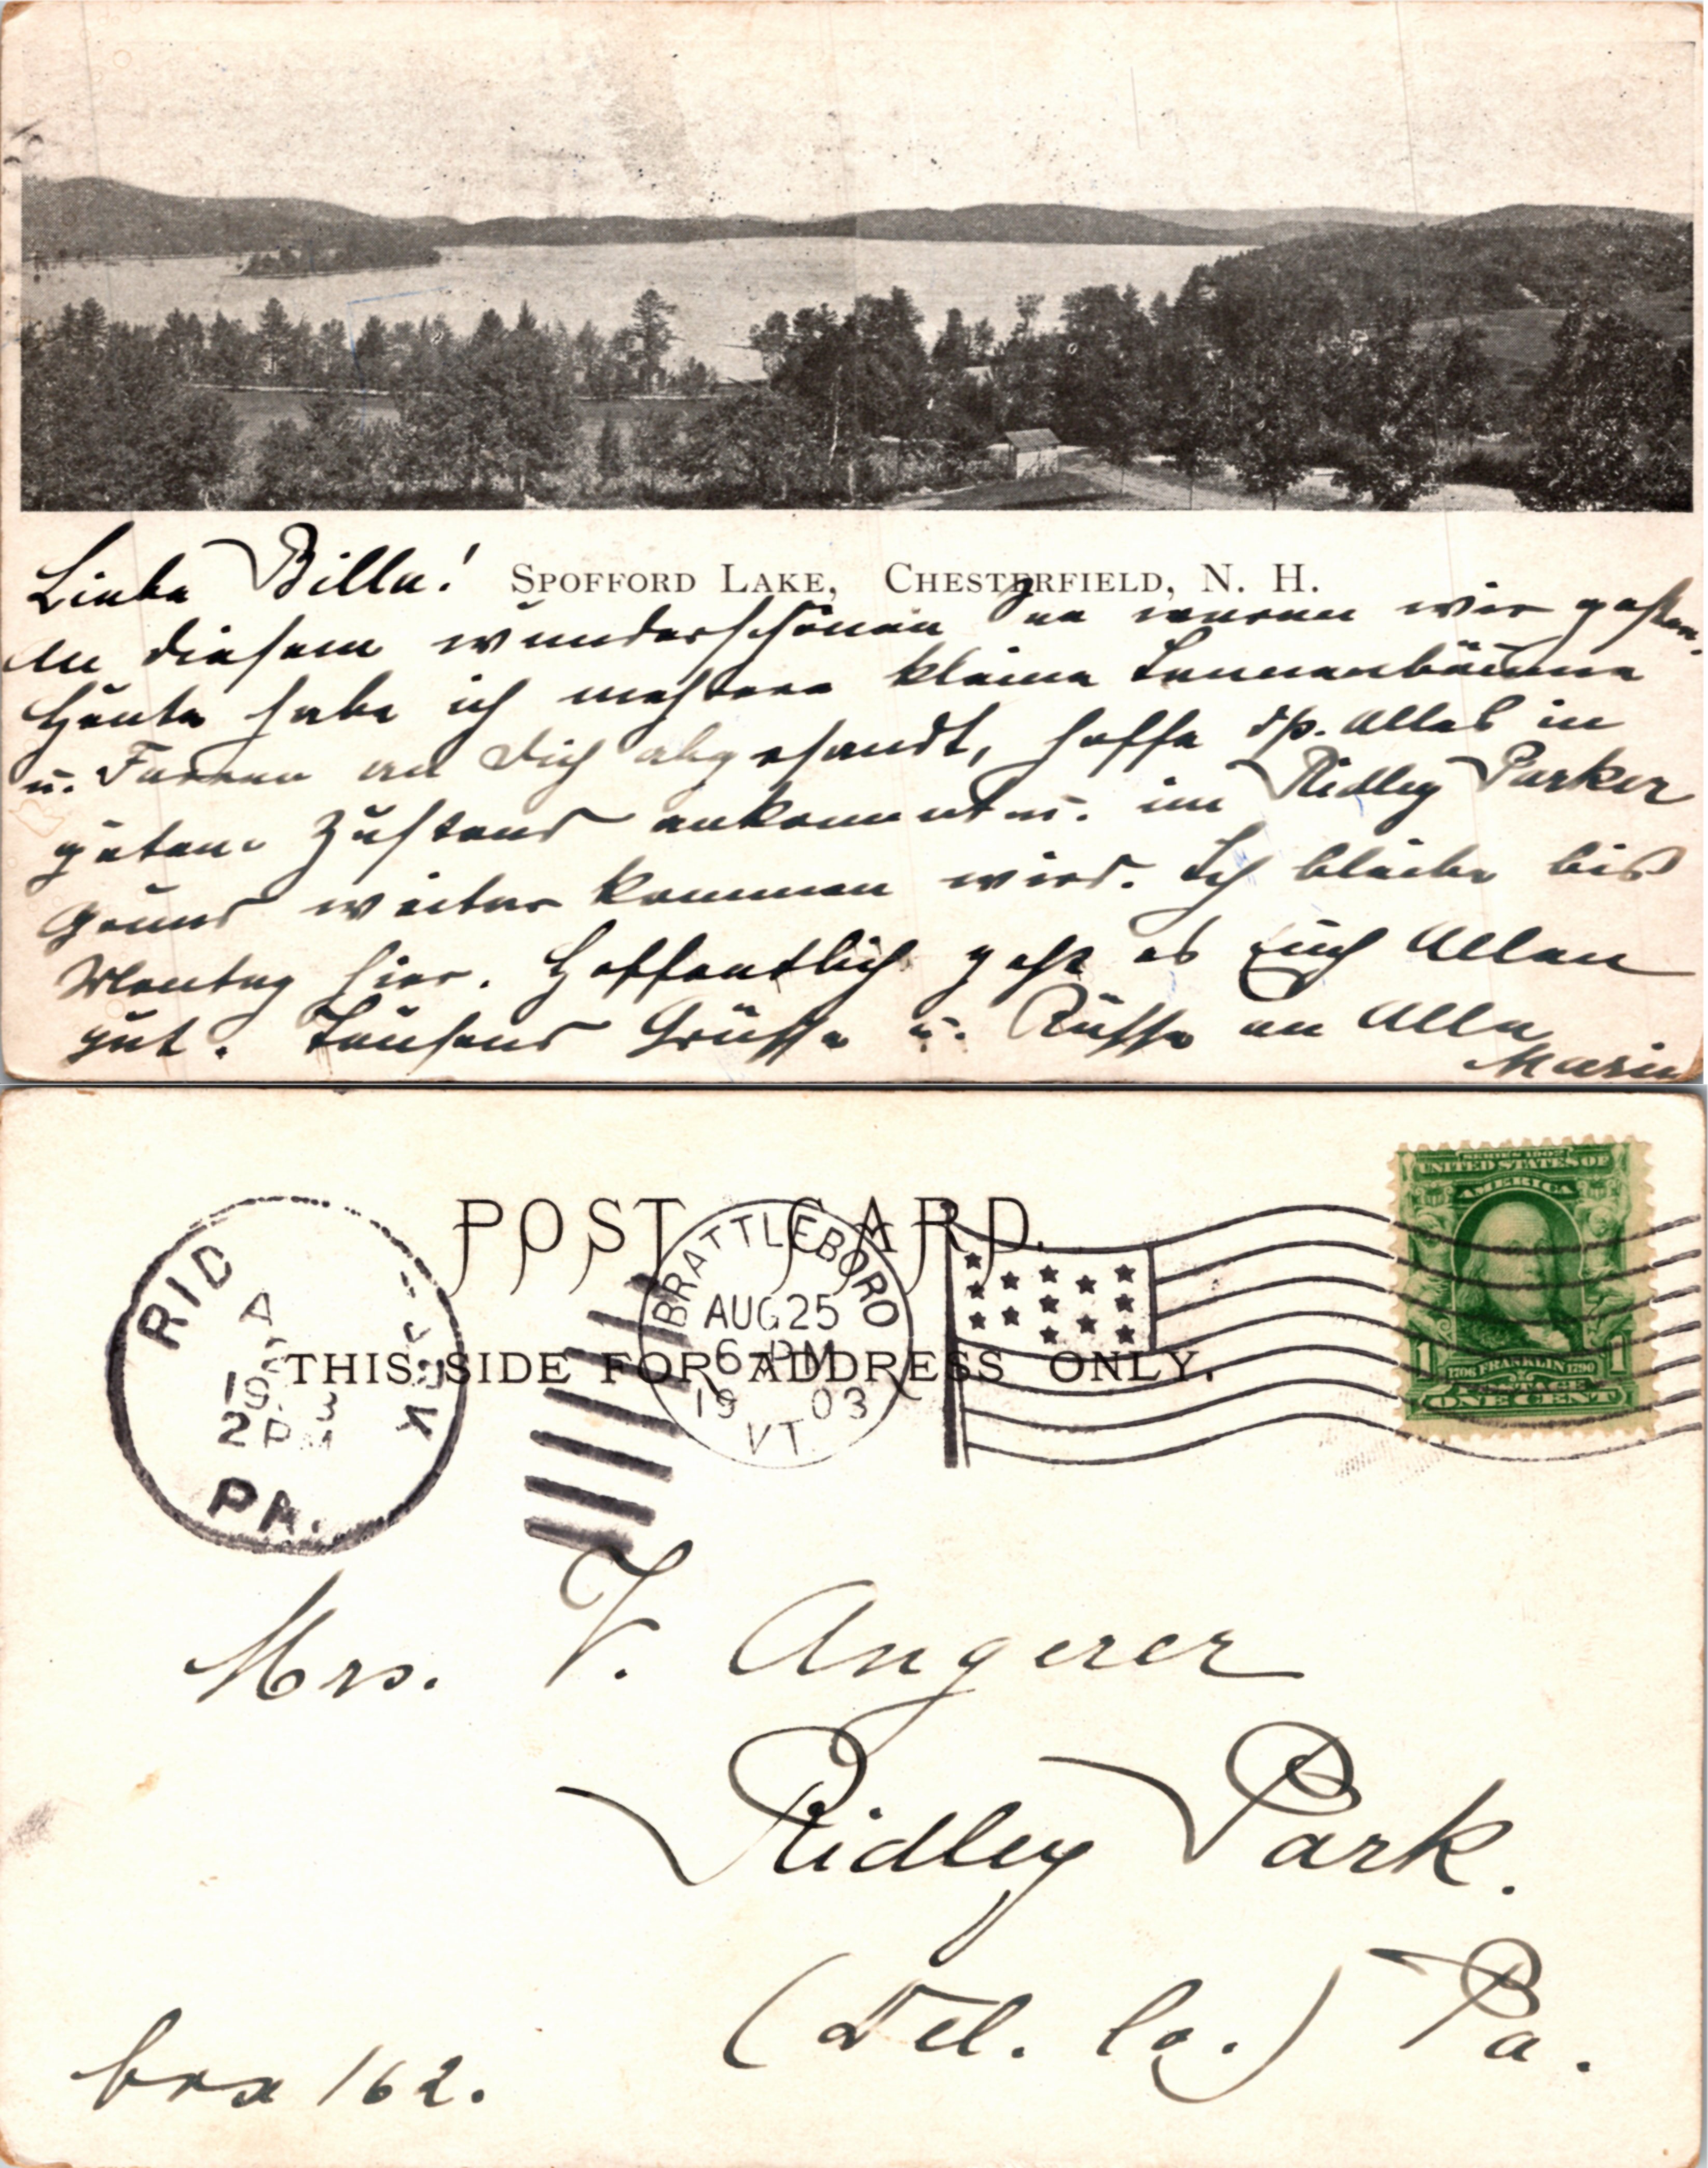 Liebe Bella!
SPOFFORD LAKE, CHESTERFIELD, N. H.
An diesem wunderschönen See waren wir gestern.
Heute habe ich mehrere kleine Tannenbäume
u. Farren an Dich abgesandt, hoffe dß. Alles in
gutem Zustand ankommt u. im Ridley Parker
Grund weiter kommen wird. Ich bleibe bis
Montag hier. Hoffentlich geht es Euch Allen
gut. Tausend Grüsse u. Küsse an Alle
Marie
POST CARD.
THIS SIDE FOR ADDRESS ONLY.
RID
A
19 3
2 PM
PA.
BRATTLEBORO
AUG 25
6 PM
19 03
VT.
SERIES 1902
UNITED STATES OF
AMERICA
1 1
1706 FRANKLIN 1790
POSTAGE
ONE CENT
Mrs. V. Angerer
Ridley Park.
(Del. Co.) Pa.
box 162.